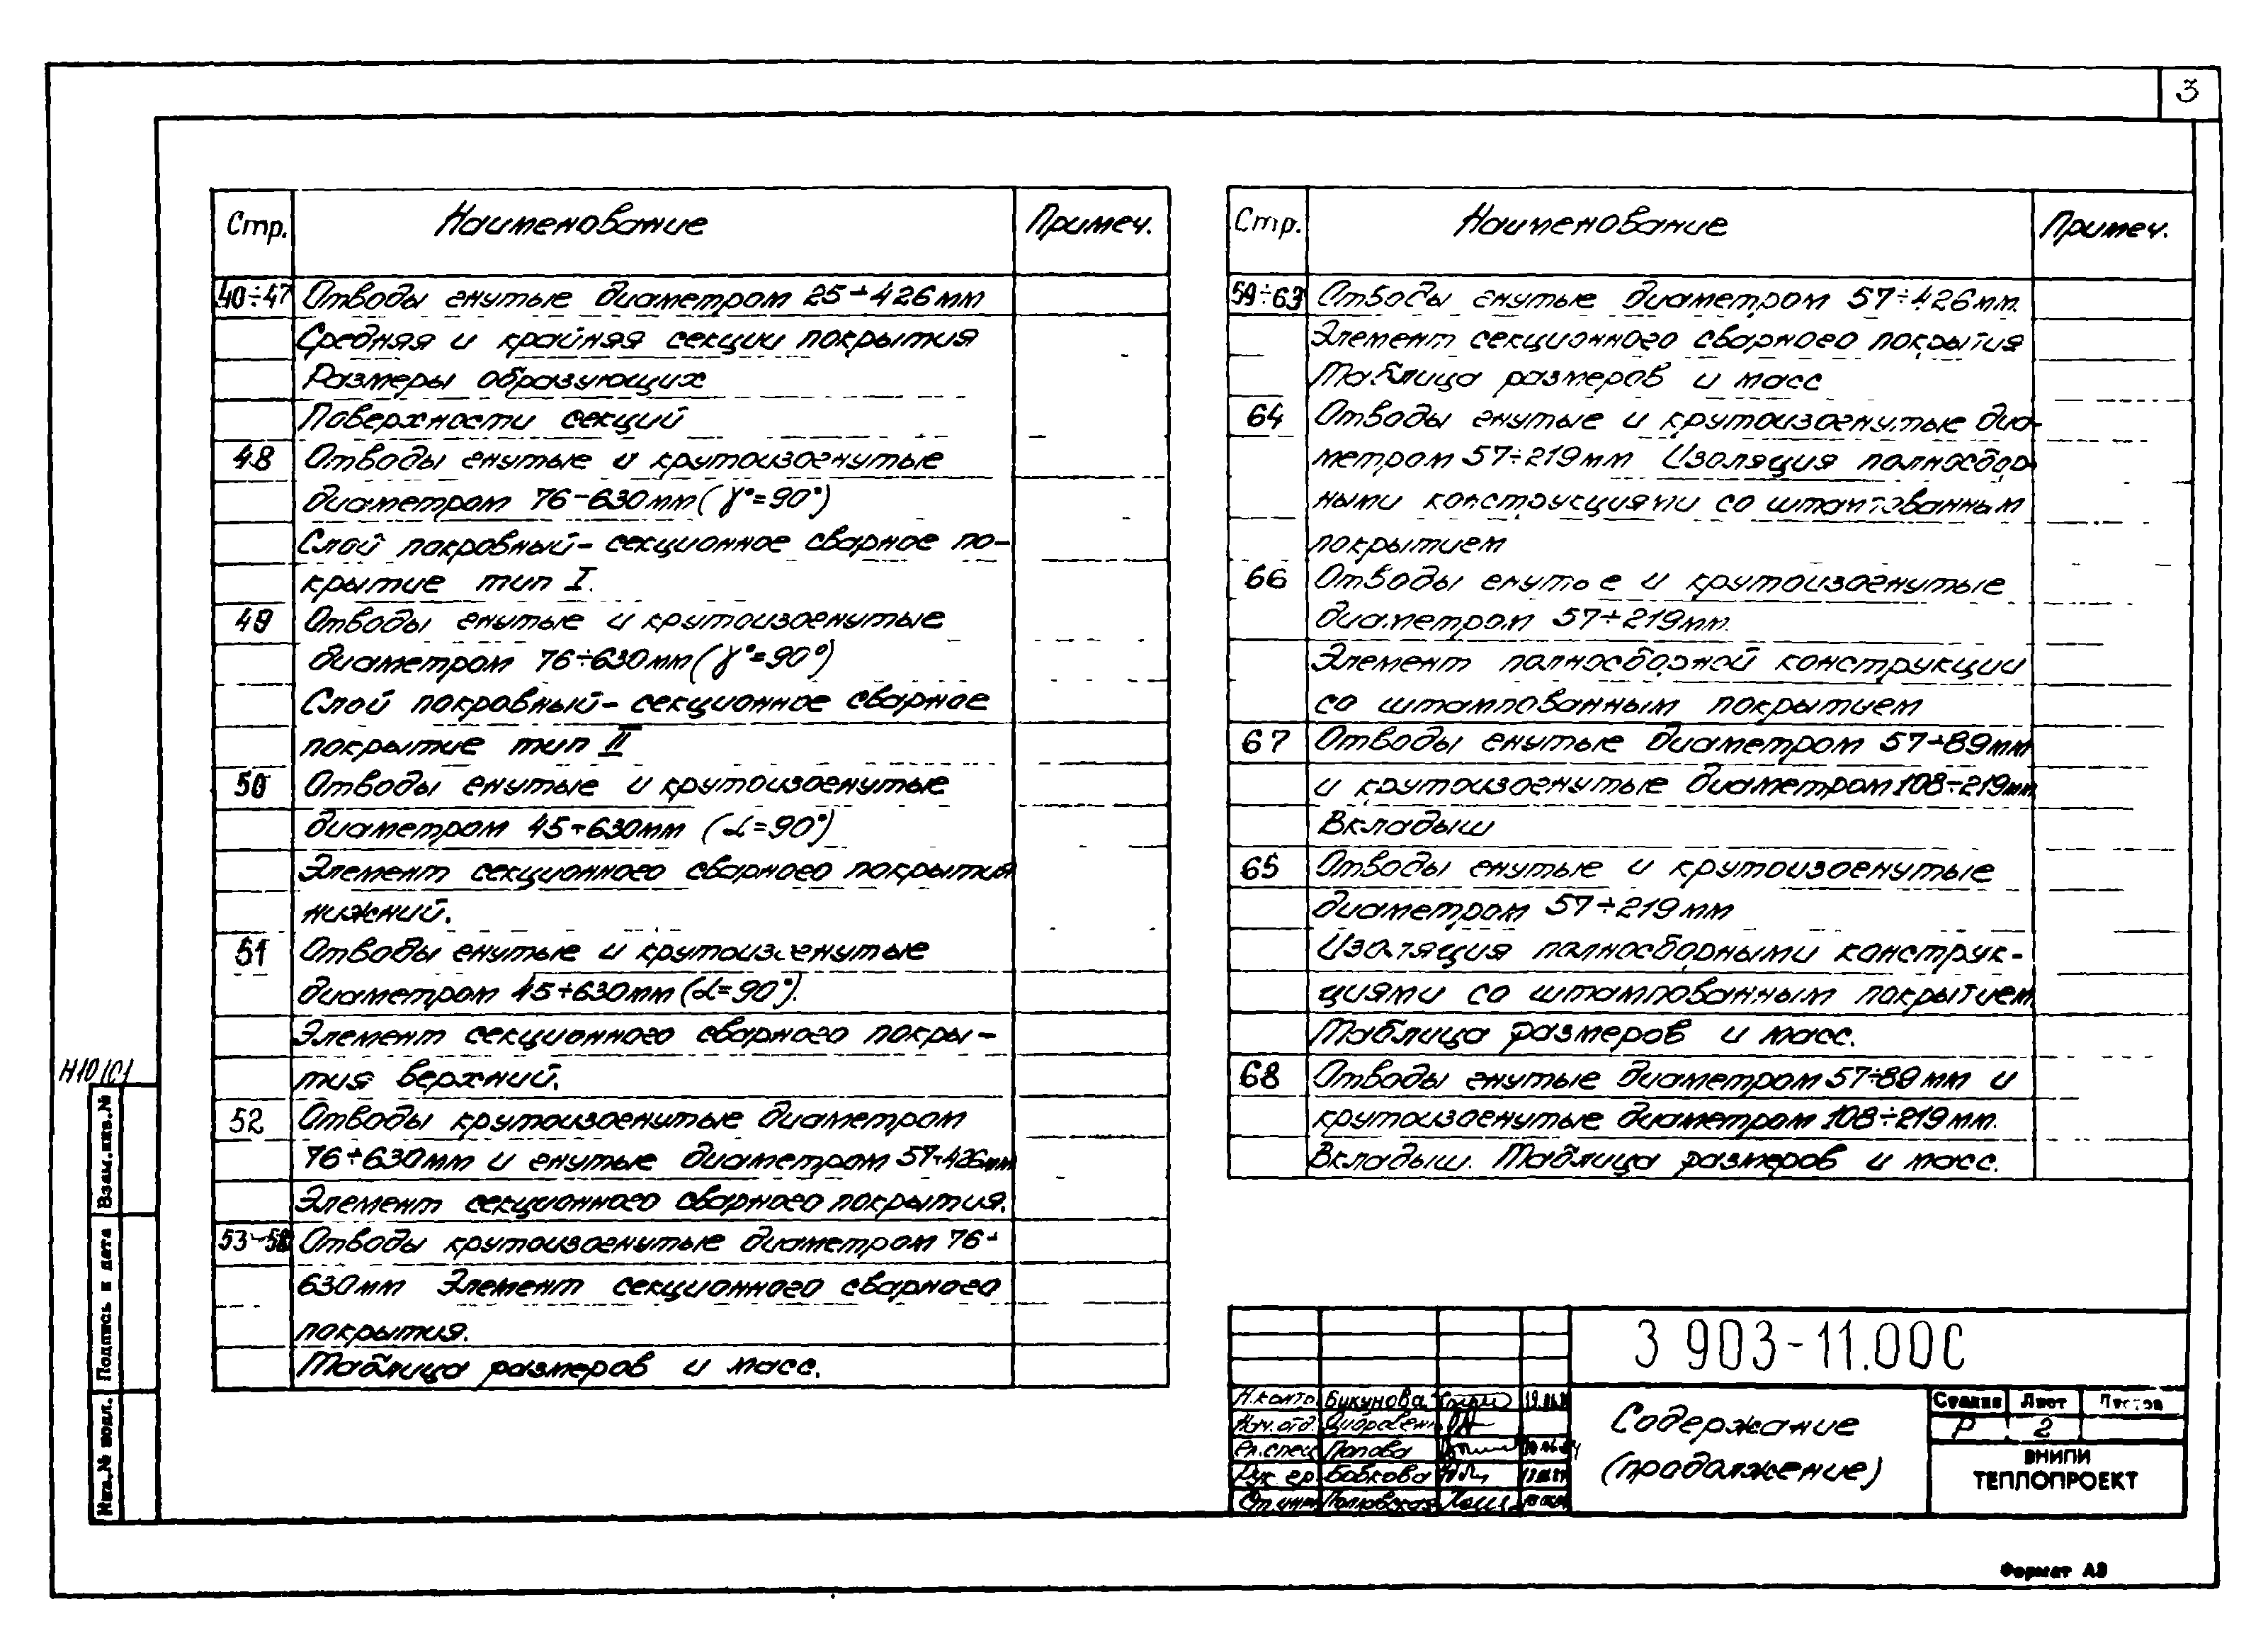 3
Стр. Наименование Примеч.
40÷47 Отводы гнутые диаметром 25÷426мм
Средняя и крайняя секции покрытия
Размеры образующих
Поверхности секций
48 Отводы гнутые и крутоизогнутые
диаметром 76-630мм (γ°=90°)
Слой покровный-секционное сварное по-
крытие тип I.
49 Отводы гнутые и крутоизогнутые
диаметром 76÷630мм (γ°=90°)
Слой покровный-секционное сварное
покрытие тип II
50 Отводы гнутые и крутоизогнутые
диаметром 45÷630мм (α=90°)
Элемент секционного сварного покрытия
нижний.
51 Отводы гнутые и крутоизогнутые
диаметром 45÷630мм (α=90°).
Элемент секционного сварного покры-
тия верхний.
52 Отводы крутоизогнутые диаметром
76÷630мм и гнутые диаметром 57÷426мм
Элемент секционного сварного покрытия.
53-58 Отводы крутоизогнутые диаметром 76÷
630мм Элемент секционного сварного
покрытия.
Таблица размеров и масс.
Стр. Наименование Примеч.
59÷63 Отводы гнутые диаметром 57÷426мм.
Элемент секционного сварного покрытия
Таблица размеров и масс
64 Отводы гнутые и крутоизогнутые диа-
метром 57÷219мм Изоляция полносбор-
ными конструкциями со штампованным
покрытием
66 Отводы гнутые и крутоизогнутые
диаметром 57÷219мм.
Элемент полносборной конструкции
со штампованным покрытием
67 Отводы гнутые диаметром 57÷89мм
и крутоизогнутые диаметром 108÷219мм
Вкладыш
65 Отводы гнутые и крутоизогнутые
диаметром 57÷219мм
Изоляция полносборными конструк-
циями со штампованным покрытием.
Таблица размеров и масс.
68 Отводы гнутые диаметром 57÷89мм и
крутоизогнутые диаметром 108÷219мм.
Вкладыш. Таблица размеров и масс.
Н10101
Взам.инв.№
Подпись и дата
Инв.№ подл.
3 903-11.00С
Н.контр. Букунова
Нач.отд.
Гл.спец Попова
Рук. гр. Бобкова
Ст инж
Содержание
(продолжение)
Стадия Лист Листов
Р 2
ВНИПИ
ТЕПЛОПРОЕКТ
Формат А3